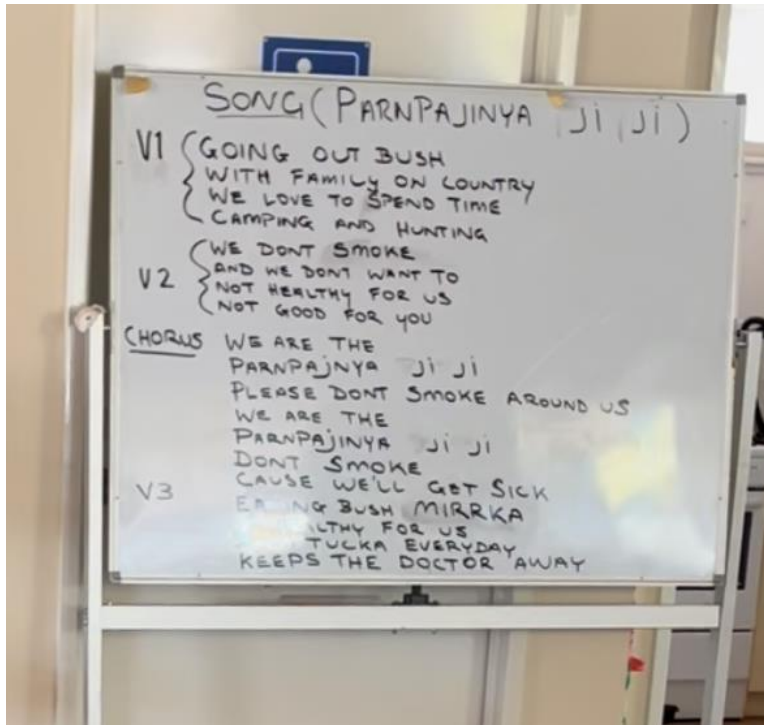 SONG (PARNPAJINYA Ji Ji)
V1 GOING OUT BUSH
WITH FAMILY ON COUNTRY
WE LOVE TO SPEND TIME
CAMPING AND HUNTING
WE DONT SMOKE
V2 AND WE DONT WANT TO
NOT HEALTHY FOR US
NOT GOOD FOR YOU
CHORUS WE ARE THE
PARNPAJNYA Ji Ji
PLEASE DONT SMOKE AROUND US
WE ARE THE
PARNPAJINYA Ji Ji
DONT SMOKE
V3 CAUSE WE'LL GET SICK
BUSH MIRRKA
FOR US
TUCKA EVERYDAY
KEEPS THE DOCTOR AWAY